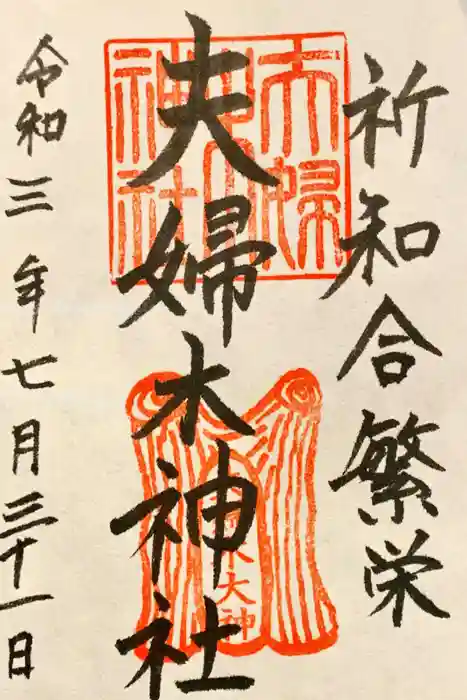 祈知合繁栄
夫婦木神社
令和三年七月三十一日
夫婦木神社
木大神